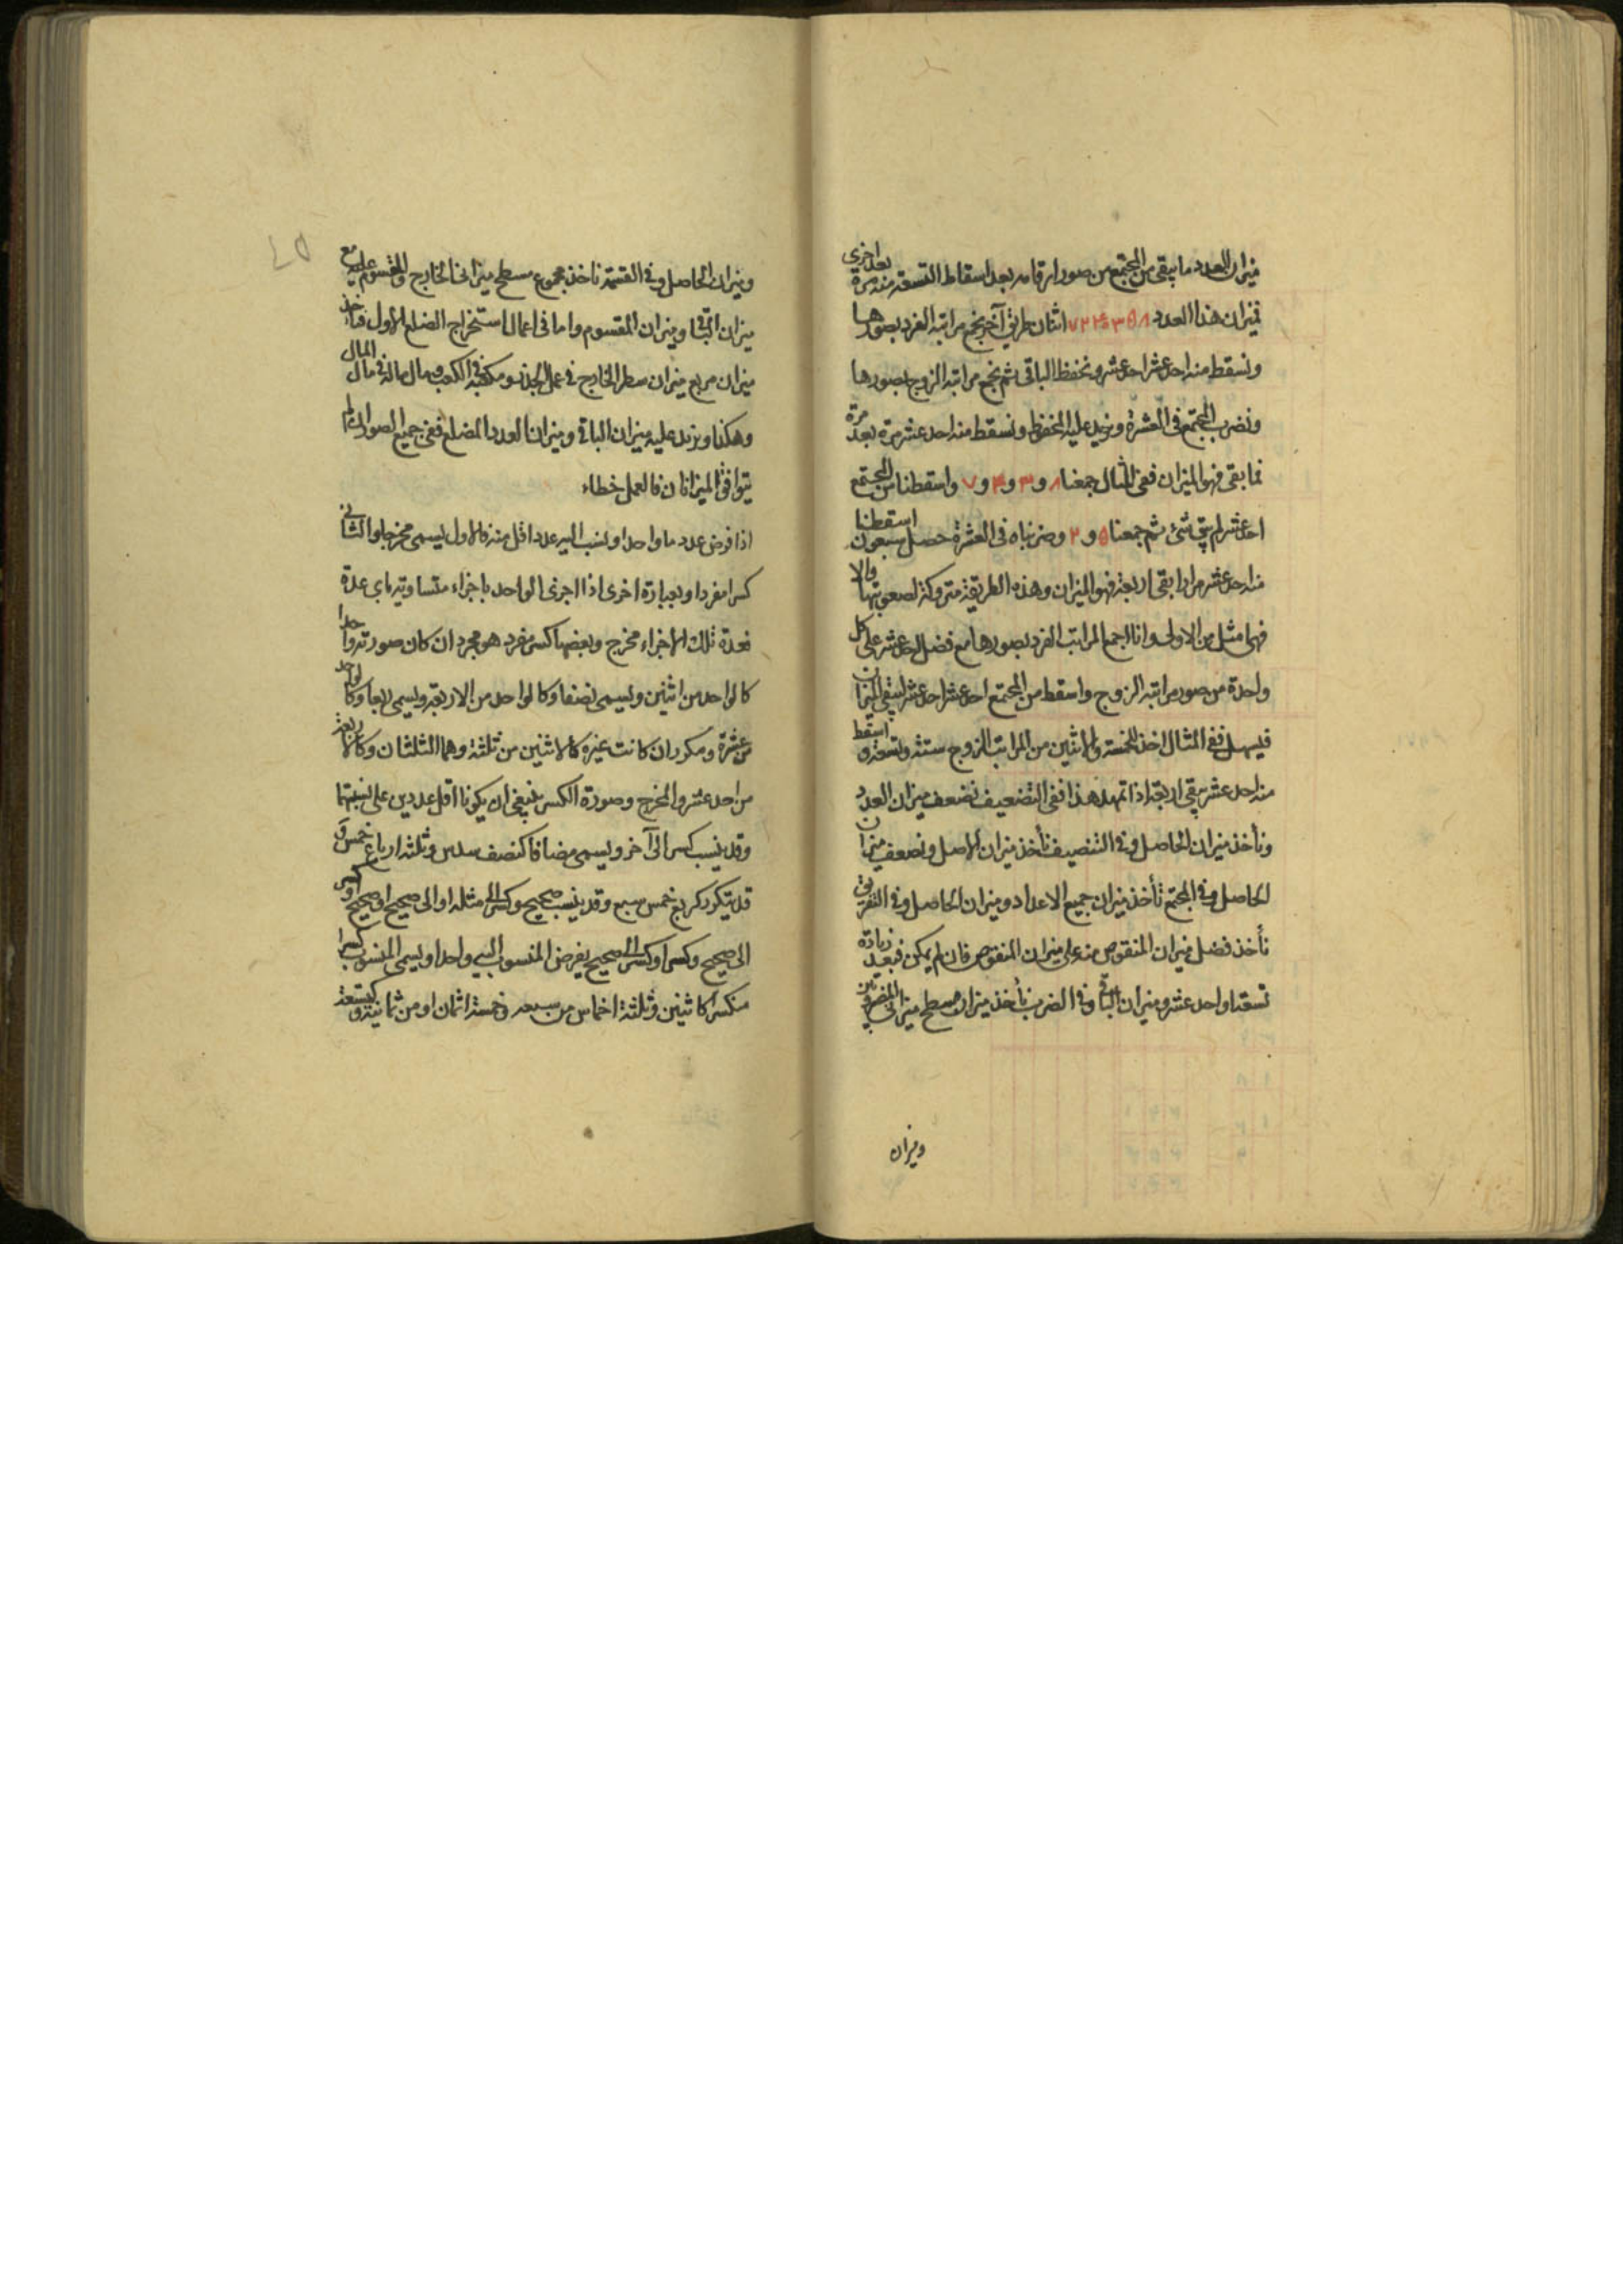 ميزان العدد ما يبقى من المجتمع من صور ارقامه بعد اسقاط التسعة منه مرة بعد اخرى
فميزان هذا العدد اثنان طريق آخر نجمع مراتبه الفرد بصورها
ونسقط منه احد عشر احد عشر ونحفظ الباقى ثم نجمع مراتبه الزوج بصورها
ونضرب المجتمع فى العشرة ونزيد عليه المحفوظ ونسقط منه احد عشر مرة بعد مرة
فما بقى فهو الميزان ففى المثال جمعنا ٨ و ٣ و ۴ و ٧ واسقطنا من المجتمع
احد عشر لم يبق شئ ثم جمعنا ۵ و ٢ وضربناه فى العشرة حصل سبعون اسقطنا
منه احد عشر مرارا بقى اربعة فهو الميزان وهذه الطريقة متروكة لصعوبتها والا
فهى امثل من الاولى وانا اجمع المراتب الفرد بصورها مع فضل احد عشر على كل
واحدة من صور مراتبه الزوج واسقط من المجتمع احد عشر احد عشر ليبقى الميزان
فيسهل ففى المثال اخذ للخمسة والاثنين من المراتب الزوج ستة وتسعة و اسقط
منه احد عشر يبقى اربعة اذا تمهد هذا ففى التضعيف نضعف ميزان العدد
ونأخذ ميزان الحاصل وفى التنصيف نأخذ ميزان الاصل ونضعف ميزان
الحاصل وفى المجتمع نأخذ ميزان جميع الاعداد وميزان الحاصل وفى التفريق
نأخذ فضل ميزان المنقوص منه على ميزان المنقوص فان لم يمكن فبعد زيادة
تسعة او احد عشر وميزان الباقى وفى الضرب نأخذ ميزان مسطح ميزانى المضروبين
وميزان
وميزان الحاصل وفى القسمة نأخذ مجموع مسطح ميزانى الخارج والمقسوم عليه مع
ميزان الباقى وميزان المقسوم واما فى اعمال استخراج الضلع الاول فنأخذ
ميزان مربع ميزان سطر الخارج فى عمل الجذر ومكعبه فى الكعب ومال ماله فى مال المال
وهكذا ونزيد عليه ميزان الباقى وميزان العدد المضلع ففى جميع الصور ان لم
يتوافق الميزانان فالعمل خطاء
اذا فرض عدد ما واحدا ونسب اليه عدد اقل منه فالاول يسمى مخرجا والثانى
كسرا مفردا وبعبارة اخرى اذا اجزئ الواحد باجزاء متساوية باى عدة
فعدة تلك الاجزاء مخرج وبعضها كسر مفرد هو مجرد ان كان صورته واحدا
كالواحد من اثنين ويسمى نصفا وكالواحد من الاربعة ويسمى ربعا وكالواحد
من عشرة ومكرر ان كانت غيره كالاثنين من ثلثة وهما الثلثان وكالاربعة
من احد عشر والمخرج وصورة الكسر ينبغى ان يكونا اقل عددين على نسبتهما
وقد ينسب كسر الى آخر ويسمى مضافا كنصف سدس وثلثة ارباع خمس و
قد يتكرر كربع خمس سبع وقد ينسب صحيح وكسر الى مثله او الى صحيح او صحيح او كسر
الى صحيح وكسر او كسر الى صحيح يفرض المنسوب اليه واحدا ويسمى المنسوب كسرا
منكسرا كاثنين وثلثة اخماس من سبعة وخمسة اثمان او من ثمانية و كتسعة